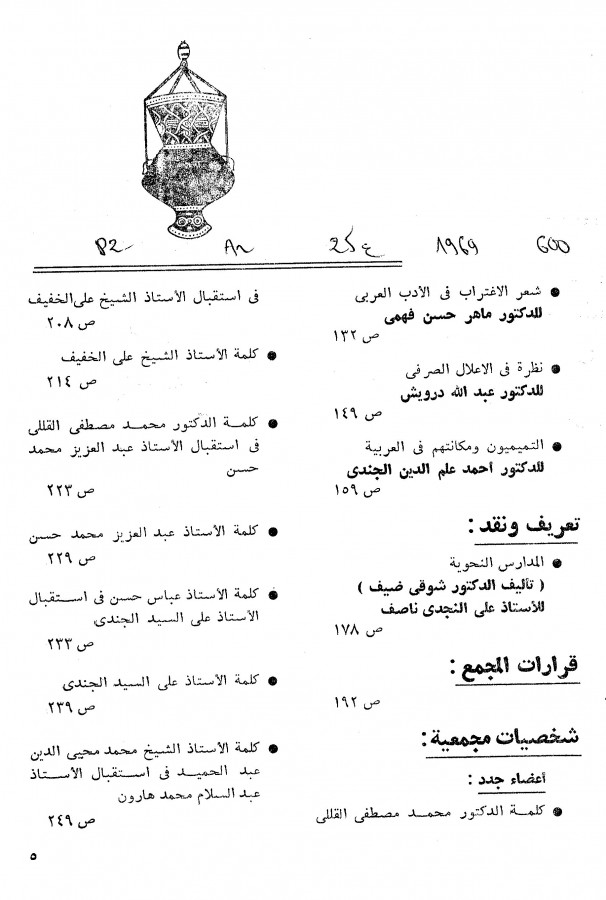 P2 Ar 25ع 1969 600
● شعر الاغتراب فى الأدب العربى
للدكتور ماهر حسن فهمى
ص ١٣٢
● نظرة فى الاعلال الصرفى
للدكتور عبد الله درويش
ص ١٤٩
● التميميون ومكانتهم فى العربية
للدكتور أحمد علم الدين الجندى
ص ١٥٩
تعريف ونقد :
● المدارس النحوية
( تأليف الدكتور شوقى ضيف )
للأستاذ على النجدى ناصف
ص ١٧٨
قرارات المجمع :
ص ١٩٢
شخصيات مجمعية :
أعضاء جدد :
● كلمة الدكتور محمد مصطفى القللى
فى استقبال الأستاذ الشيخ على الخفيف
ص ٢٠٨
● كلمة الأستاذ الشيخ على الخفيف
ص ٢١٤
● كلمة الدكتور محمد مصطفى القللى
فى استقبال الأستاذ عبد العزيز محمد
حسن
ص ٢٢٣
● كلمة الأستاذ عبد العزيز محمد حسن
ص ٢٢٩
● كلمة الأستاذ عباس حسن فى استقبال
الأستاذ على السيد الجندى
ص ٢٣٣
● كلمة الأستاذ على السيد الجندى
ص ٢٣٩
● كلمة الأستاذ الشيخ محمد محيى الدين
عبد الحميد فى استقبال الأستاذ
عبد السلام محمد هارون
ص ٢٤٩
٥